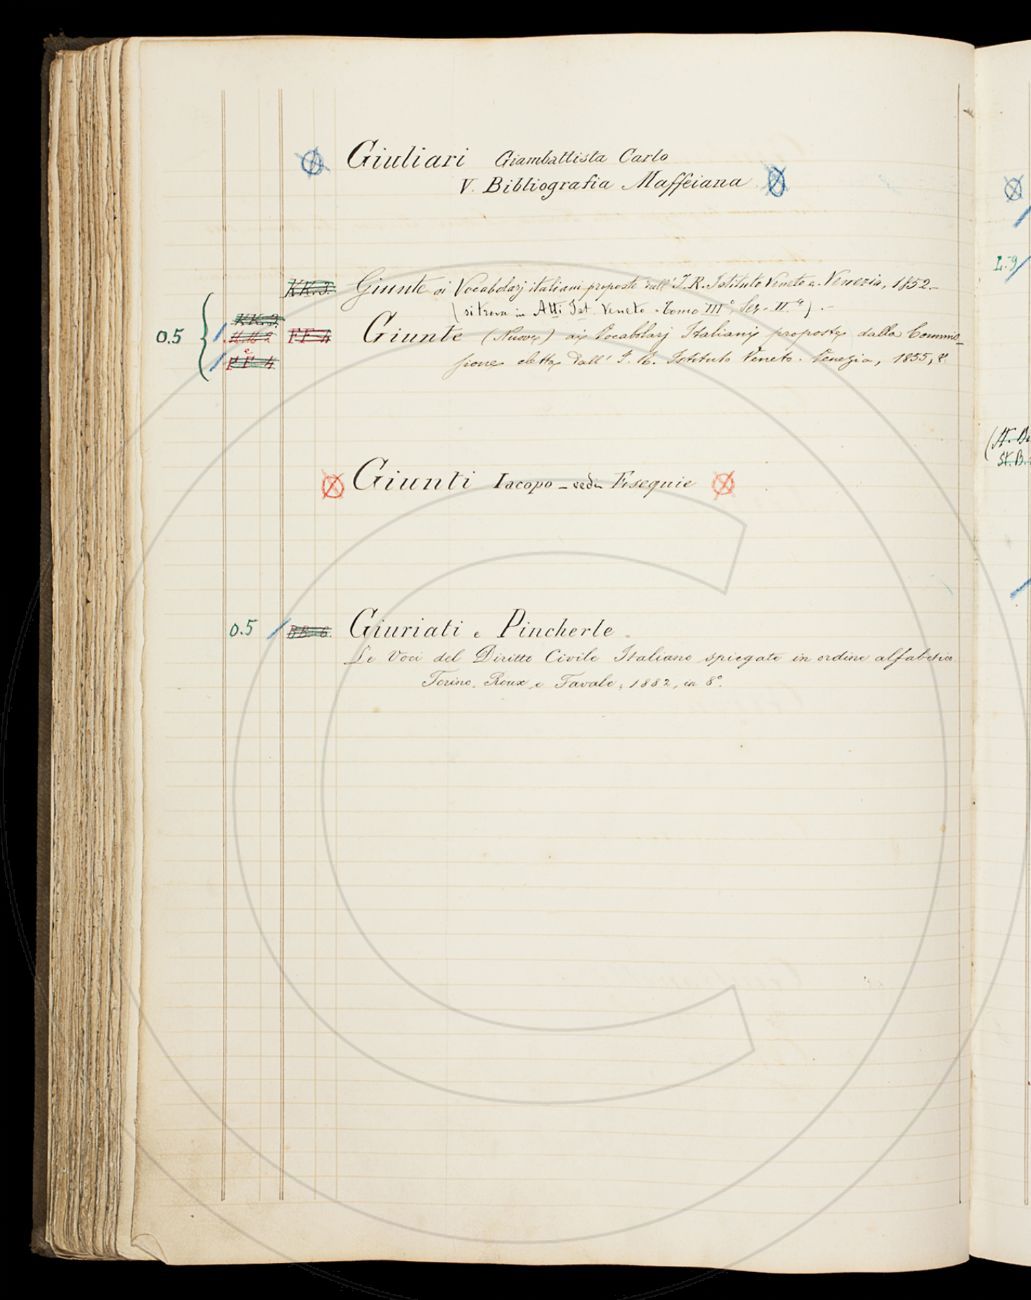 Giuliari Giambattista Carlo
V. Bibliografia Maffeiana
K K. 3. Giunte ai Vocabolarj italiani proposte dall' I. R. Istituto Veneto - Venezia, 1852 -
(si trova in Atti Ist. Veneto - Tomo III° Ser. II.ª) -
0.5 F F 4 Giunte (Nuove) ai Vocabolarj Italiani proposte dalla Commis_
sione eletta dall' I. R. Istituto Veneto. Venezia, 1855, 8°
Giunti Iacopo - vedi Esequie
0.5 BB. 6. Giuriati e Pincherle
Le Voci del Diritto Civile Italiano spiegate in ordine alfabetico
Torino, Roux e Favale, 1882, in 8°.
L. 9